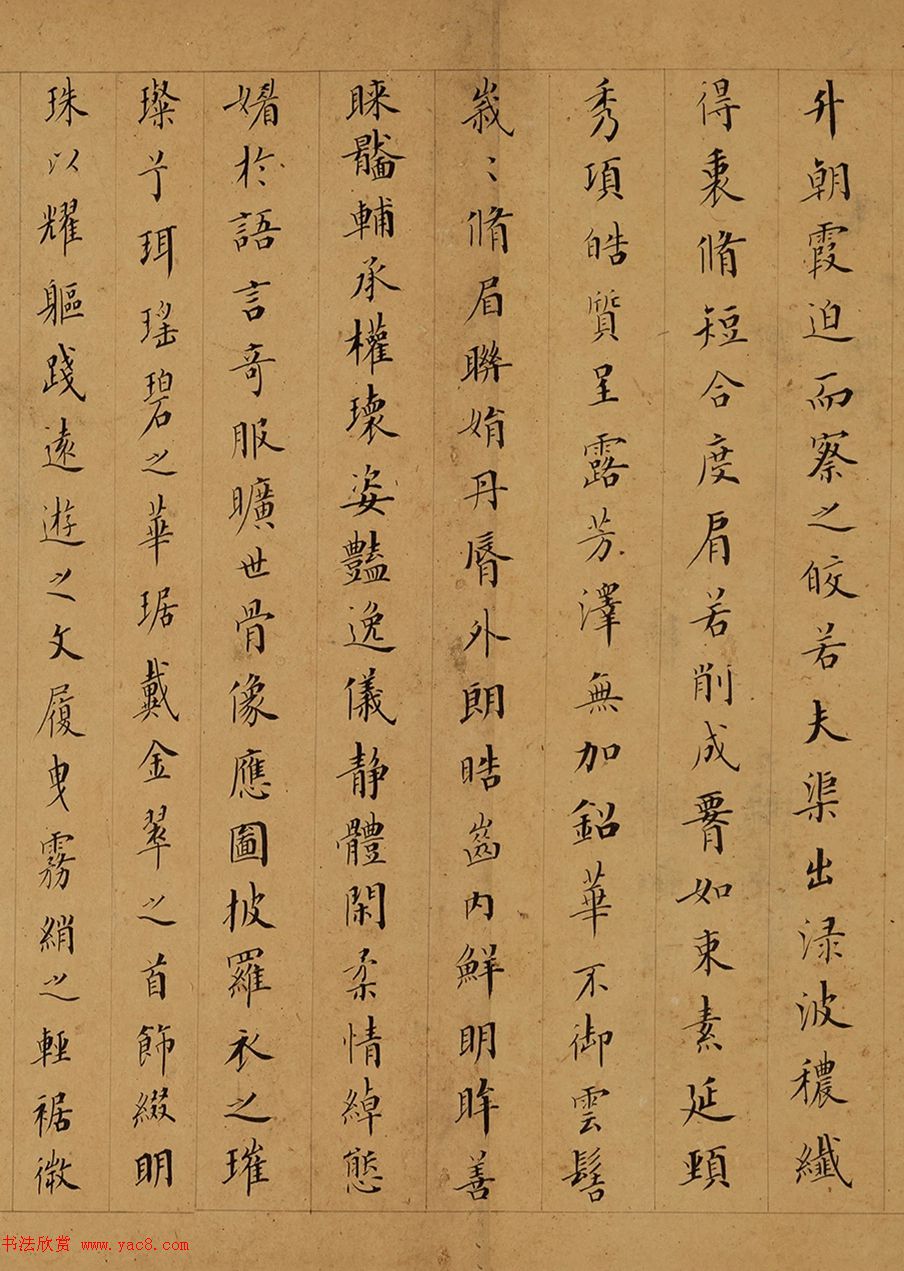 升朝霞迫而察之皎若夫渠出渌波穠纖
得衷脩短合度肩若削成署如束素延頸
秀項皓質呈露芳澤無加鉛華不御雲髻
峩〻脩眉聯娟丹脣外朗皓齒内鮮明眸善
睞靨輔承權瓌姿豔逸儀静體閑柔情綽態
媚於語言奇服曠世骨像應圖披羅衣之璀
璨兮珥瑶碧之華琚戴金翠之首飾綴明
珠以耀軀踐遠遊之文履曳霧綃之輕裾微
书法欣赏 www.yac8.com